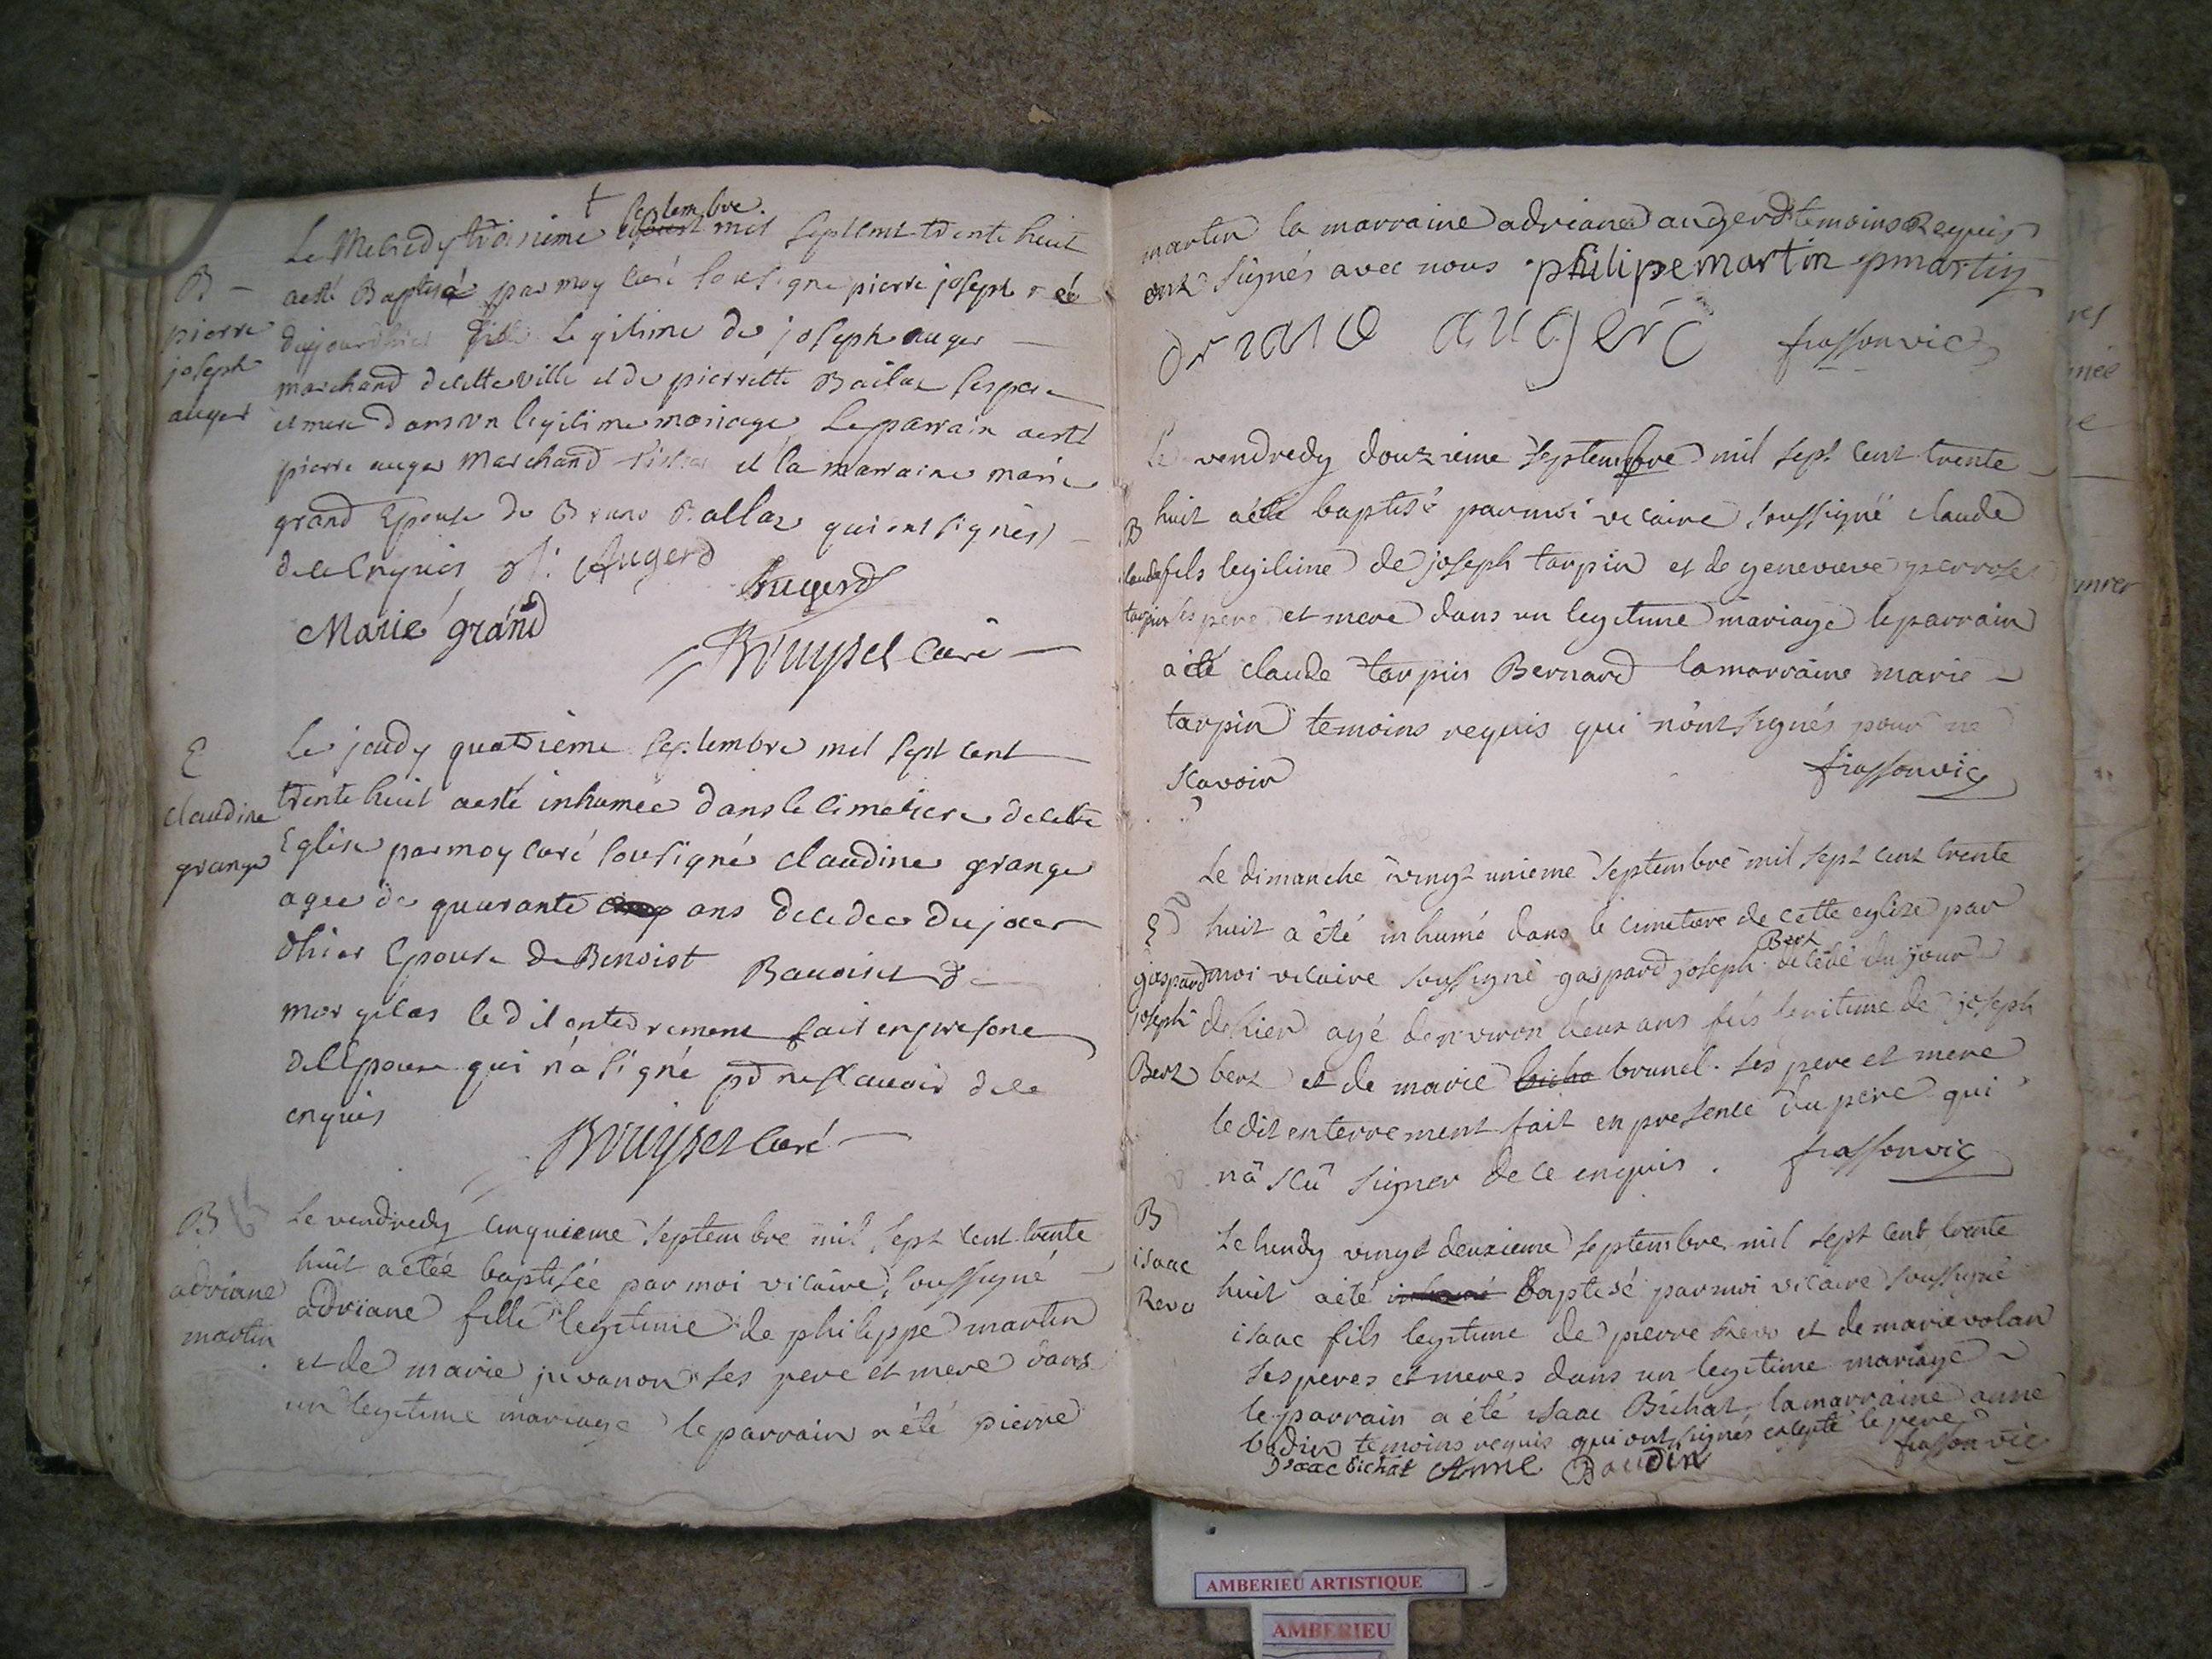 B
pierre
joseph
auger
septembre
Le Mecredy troisieme aoust mil sept cent trente huit
a esté Baptisé par moy curé sousigné pierre joseph né
dujourdhier fils Legitime de joseph auger
marchand decette ville et de pierrette Bailar ses pere
et mere dans vn legitime mariage Le parrain a esté
pierre auger Marchand et la marraine marie
grand Epouse de Bruno Ballaz qui ont signés
de ce Enquis Augerd
Augerd
Marie grand
Bruyset Curé
E
claudine
grange
Le jeudy quatrieme septembre mil sept cent
trente huit a esté inhumée dans le cimetiere de cette
Eglise par moy curé sousigné claudine grange
agee de quarante cinq ans decedee du jour
dhier Epouse de Benoist Bauoiset de
morgelas le dit enterrement fait en presence
de lEpoux qui n'a signé pr ne sçauoir de ce
enquis
Bruyset Curé
B
adriane
martin
Le vendredy cinquieme septembre mil sept cent trente
huit a étée baptisée par moi vicaire soussigné
adriane fille legitime de philippe martin
et de marie juvanon ses pere et mere dans
un legitime mariage le parrain a été pierre
martin la marraine adriane augerd temoins Requis
ont signés avec nous philipe martin pmartin
driane augerd frasson vic
B
claude
tarpin
Le vendredy douzieme septembre mil sept cent trente
huit a été baptisé par moi vicaire soussigné claude
fils legitime de joseph tarpin et de genevieve perroset
ses pere et mere dans un legitime mariage le parrain
a été claude tarpin Bernard la marraine marie
tarpin temoins requis qui n'ont signés pour ne
scavoir frasson vic
E
gaspard
joseph
Bert
Le dimanche vingt unieme septembre mil sept cent trente
huit a été inhumé dans le cimetiere de cette eglise par
Bert
moi vicaire soussigné gaspard joseph decedé du jour
de hier agé denviron deux ans fils legitime de joseph
bert et de marie bicho brunel. ses pere et mere
le dit enterrement fait en presence du pere qui
n'a scu signer de ce enquis. frasson vic
B
isaac
Revo
Le lundy vingt deuxieme septembre mil sept cent trente
huit a été inhumé baptisé par moi vicaire soussigné
isaac fils legitime de pierre Revo et de marie volan
ses peres et meres dans un legitime mariage
le parrain a été isaac Bichat la marraine anne
bodin temoins requis qui ont signés excepté le pere
Isaac bichat Anne Baudin frasson vic
AMBERIEU ARTISTIQUE
AMBERIEU